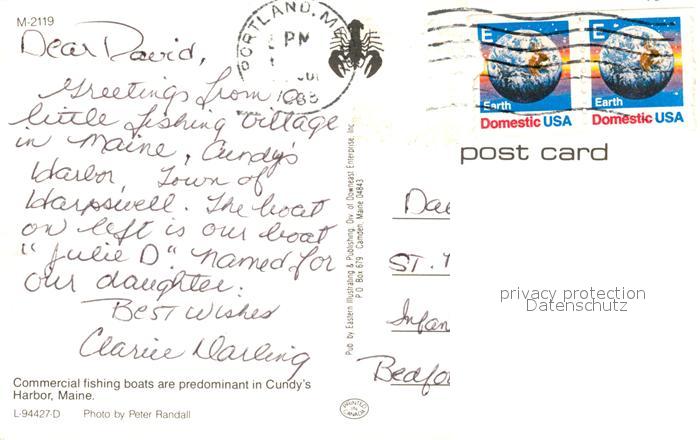 M-2119
Dear David,
Greetings from a
little fishing village
in Maine, Cundy's
Harbor, Town of
Harpswell. The boat
on left is our boat
"Julie D" named for
our daughter.
Best Wishes
Clarice Darling
Commercial fishing boats are predominant in Cundy's
Harbor, Maine.
L-94427-D Photo by Peter Randall
PORTLAND, M
PM
Pub. by Eastern Illustrating & Publishing, Div. of Downeast Enterprise, Inc.
P.O. Box 679 Camden, Maine 04843
PRINTED IN CANADA
E
Earth
Domestic USA
E
Earth
Domestic USA
post card
Da
ST.
Infan
Bedfo
privacy protection
Datenschutz